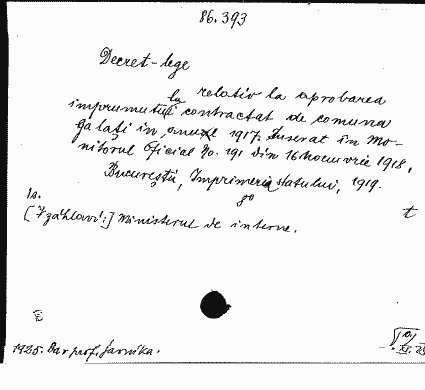 86.393
Decret-lege
la relativ la aprobarea
imprumutului contractat de comuna
Galați in anul 1917. Inserat in Mo-
nitorul Oficial No. 191 din 16 Noemvrie 1918,
București, Imprimeria statului, 1919.
8o
1s.
[Z záhlaví:] Ministerul de interne.
t
1925. Dar prof. Jarníka.